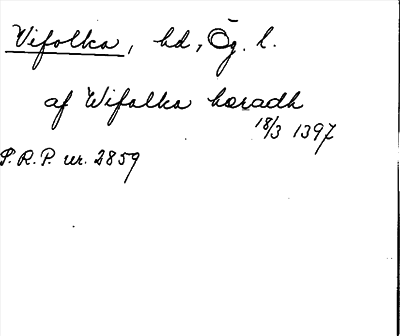 Vifolka, hd, Ög. l.
af Wifalka hæradh
18/3 1397
S.R.P. nr. 2859